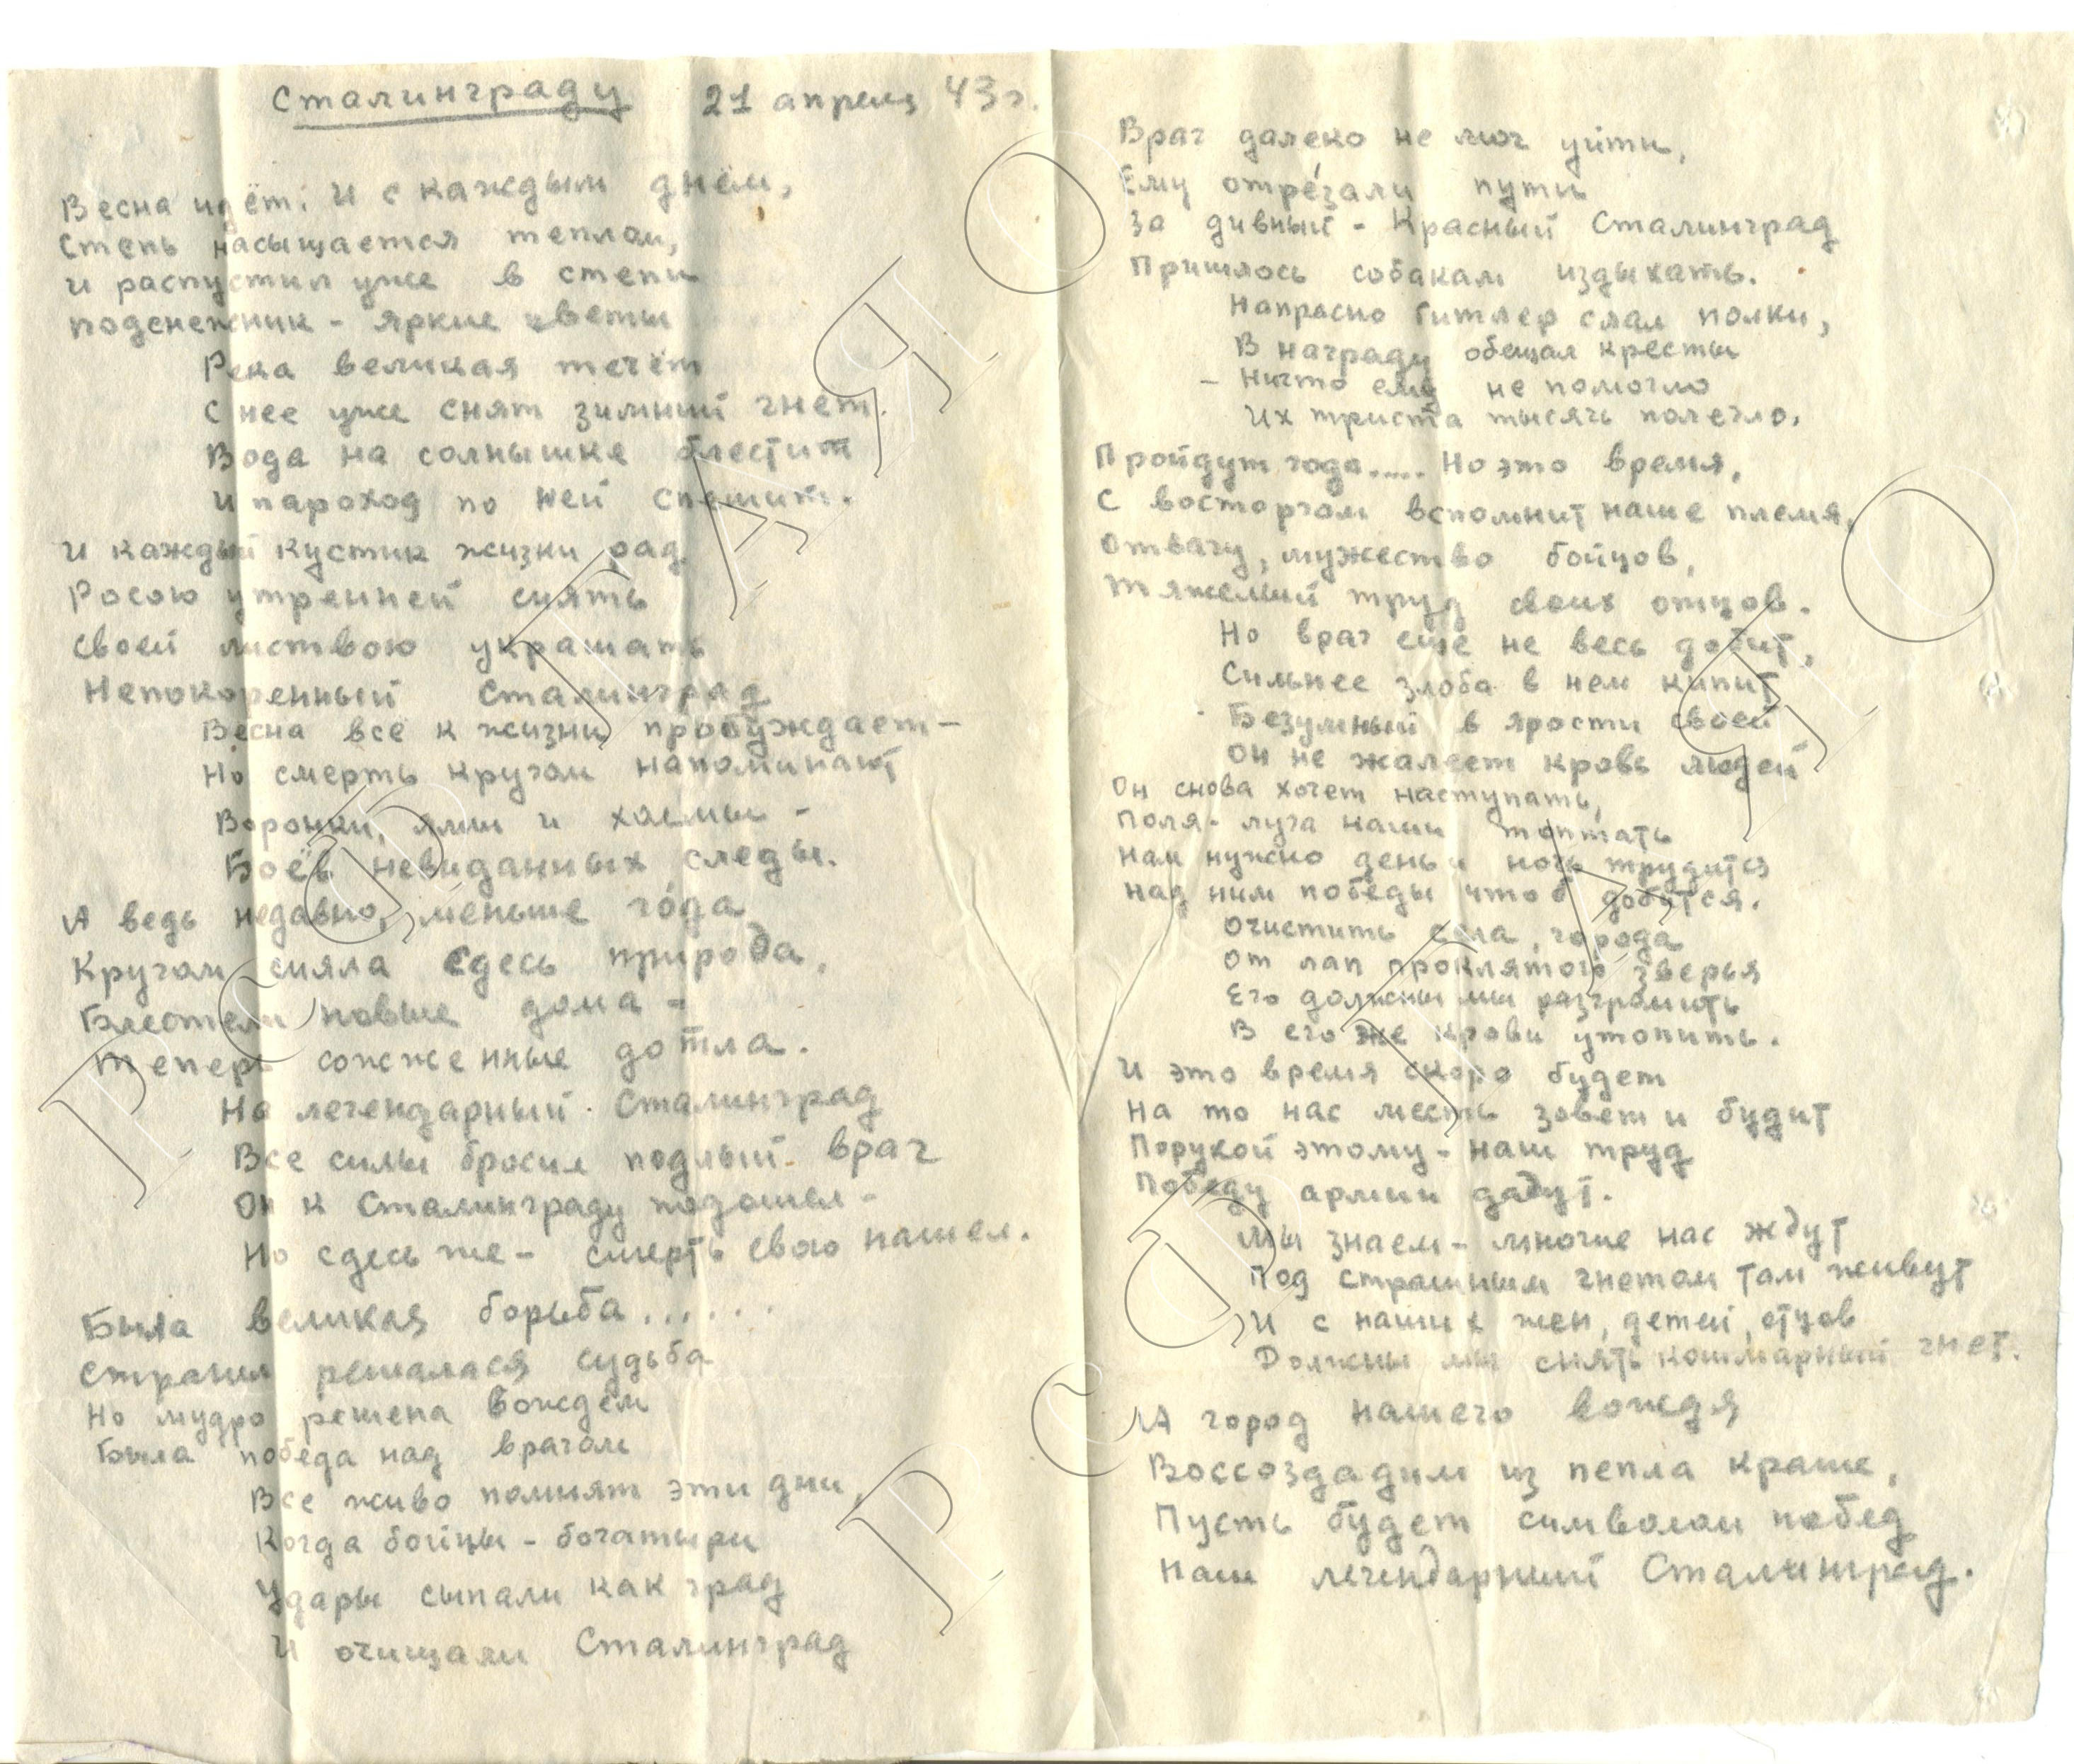 Сталинграду 21 апреля 43г.
Весна идёт: и с каждым днём,
Степь насыщается теплом,
И распустил уже в степи
Подснежник - яркие цветы
Река великая течёт
С нее уже снят зимний гнет.
Вода на солнышке блестит
И пароход по ней спешит.
И каждый кустик жизни рад
Росою утренней сиять
Своей листвою украшать
Непокоренный Сталинград
Весна все к жизни пробуждает -
Но смерть кругом напоминают
Воронки, ямы и холмы -
Боёв невиданных следы.
А ведь недавно, меньше года
Кругом сияла сдесь природа,
Блестели новые дома -
Теперь сожженные дотла.
На легендарный Сталинград
Все силы бросил подлый враг
Он к Сталинграду подошел -
Но сдесь же - смерть свою нашел.
Была великая борьба......
Страны решалася судьба
Но мудро решена вождём
Была победа над врагом
Все живо помнят эти дни,
Когда бойцы - богатыри
Удары сыпали как град
И очищали Сталинград
Враг далеко не мог уйти,
Ему отрезали пути
За дивный - Красный Сталинград
Пришлось собакам издыхать.
Напрасно Гитлер слал полки,
В награду обещал кресты
- Ничто ему не помогло
Их триста тысячь полегло.
Пройдут года..... Но это время,
С восторгом вспомнит наше племя,
Отвагу, мужество бойцов,
Тяжелый труд своих отцов.
Но враг еще не весь добит,
Сильнее злоба в нем кипит
Безумный в ярости своей
Он не жалеет кровь людей
Он снова хочет наступать,
Поля - луга наши топтать
Нам нужно день и ночь трудится
Над ним победы что б добится.
Очистить села, города
От лап проклятого зверья
Его должны мы разгромить
В его же крови утопить.
И это время скоро будет
На то нас месть зовет и будит
Порукой этому - наш труд
Победу армии дадут.
Мы знаем - многие нас ждут
Под страшным гнетом там живут
И с наших жен, детей, отцов
Должны мы снять кошмарный гнет.
А город нашего вождя
Воссоздадим из пепла краше,
Пусть будет символом побед
Наш легендарный Сталинград.
РСФ ГАЯО
РСФ ГАЯО